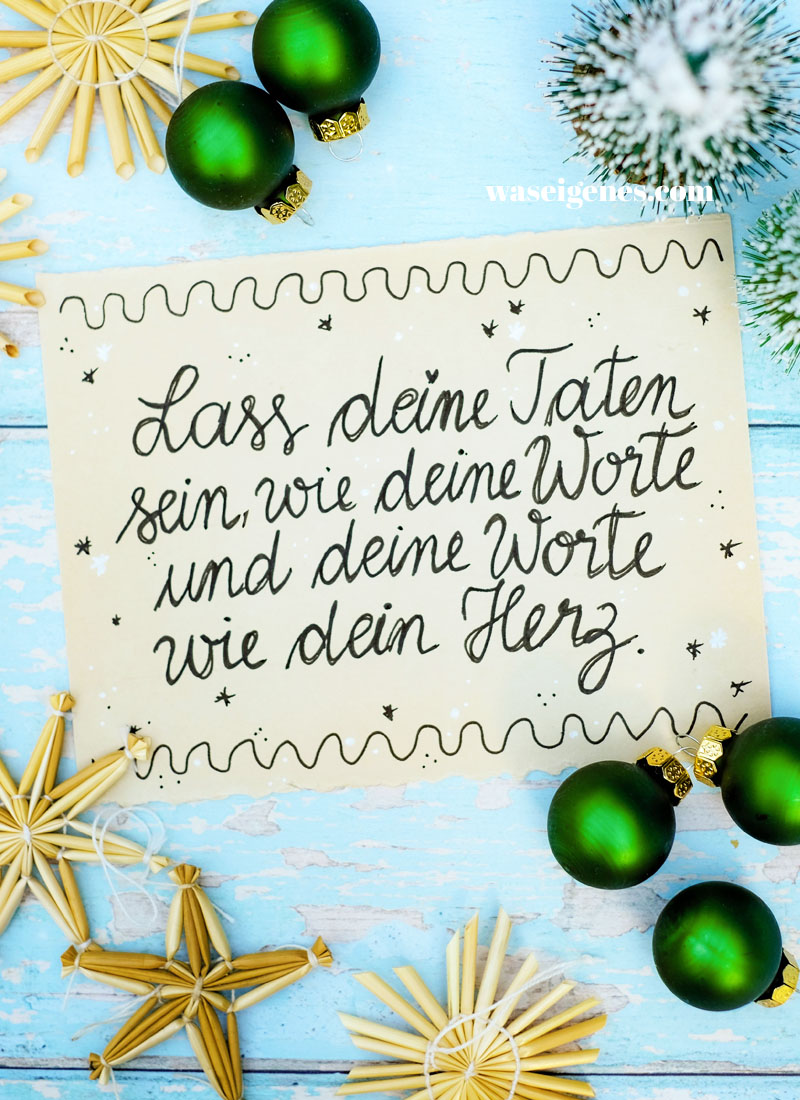 waseigenes.com
Lass deine Taten
sein, wie deine Worte
und deine Worte
wie dein Herz.